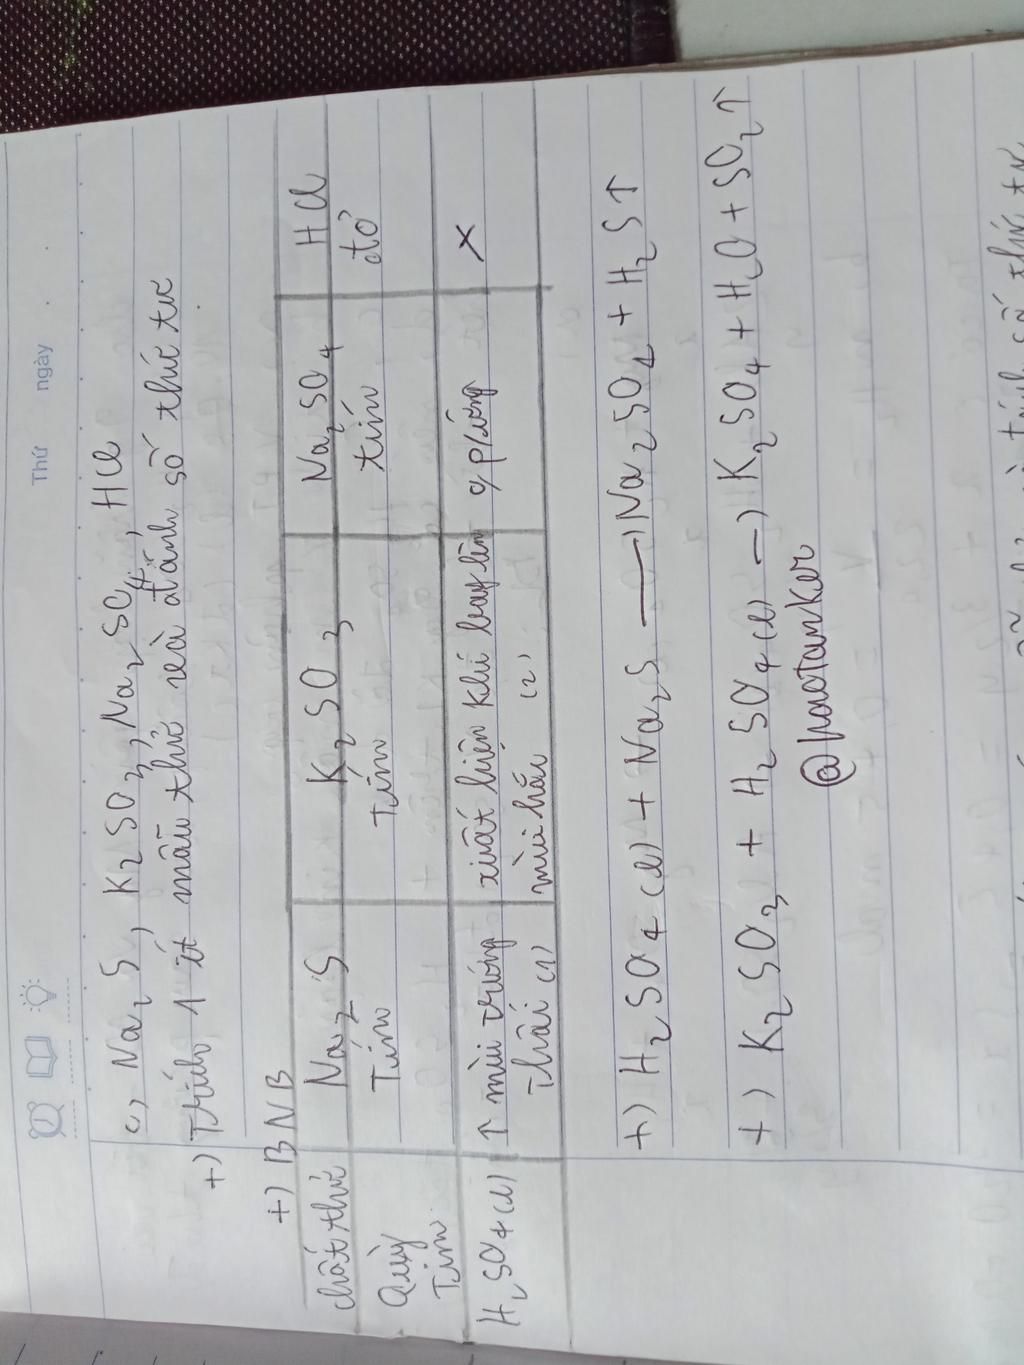 Thứ ngày
c, Na₂S, K₂SO₃, Na₂SO₄, HCl
+) Trích 1 ít mẫu thử và đánh số thứ tự
+) BNB
chất thử Na₂S K₂SO₃ Na₂SO₄ HCl
Quỳ Tím Tím Tím tím đỏ
H₂SO₄(l) ↑ mùi trứng thối (1) xuất hiện khí bay lên mùi hắc (2) 0 p/ứng x
+) H₂SO₄(l) + Na₂S ⟶ Na₂SO₄ + H₂S↑
+) K₂SO₃ + H₂SO₄(l) → K₂SO₄ + H₂O + SO₂↑
@haotanker